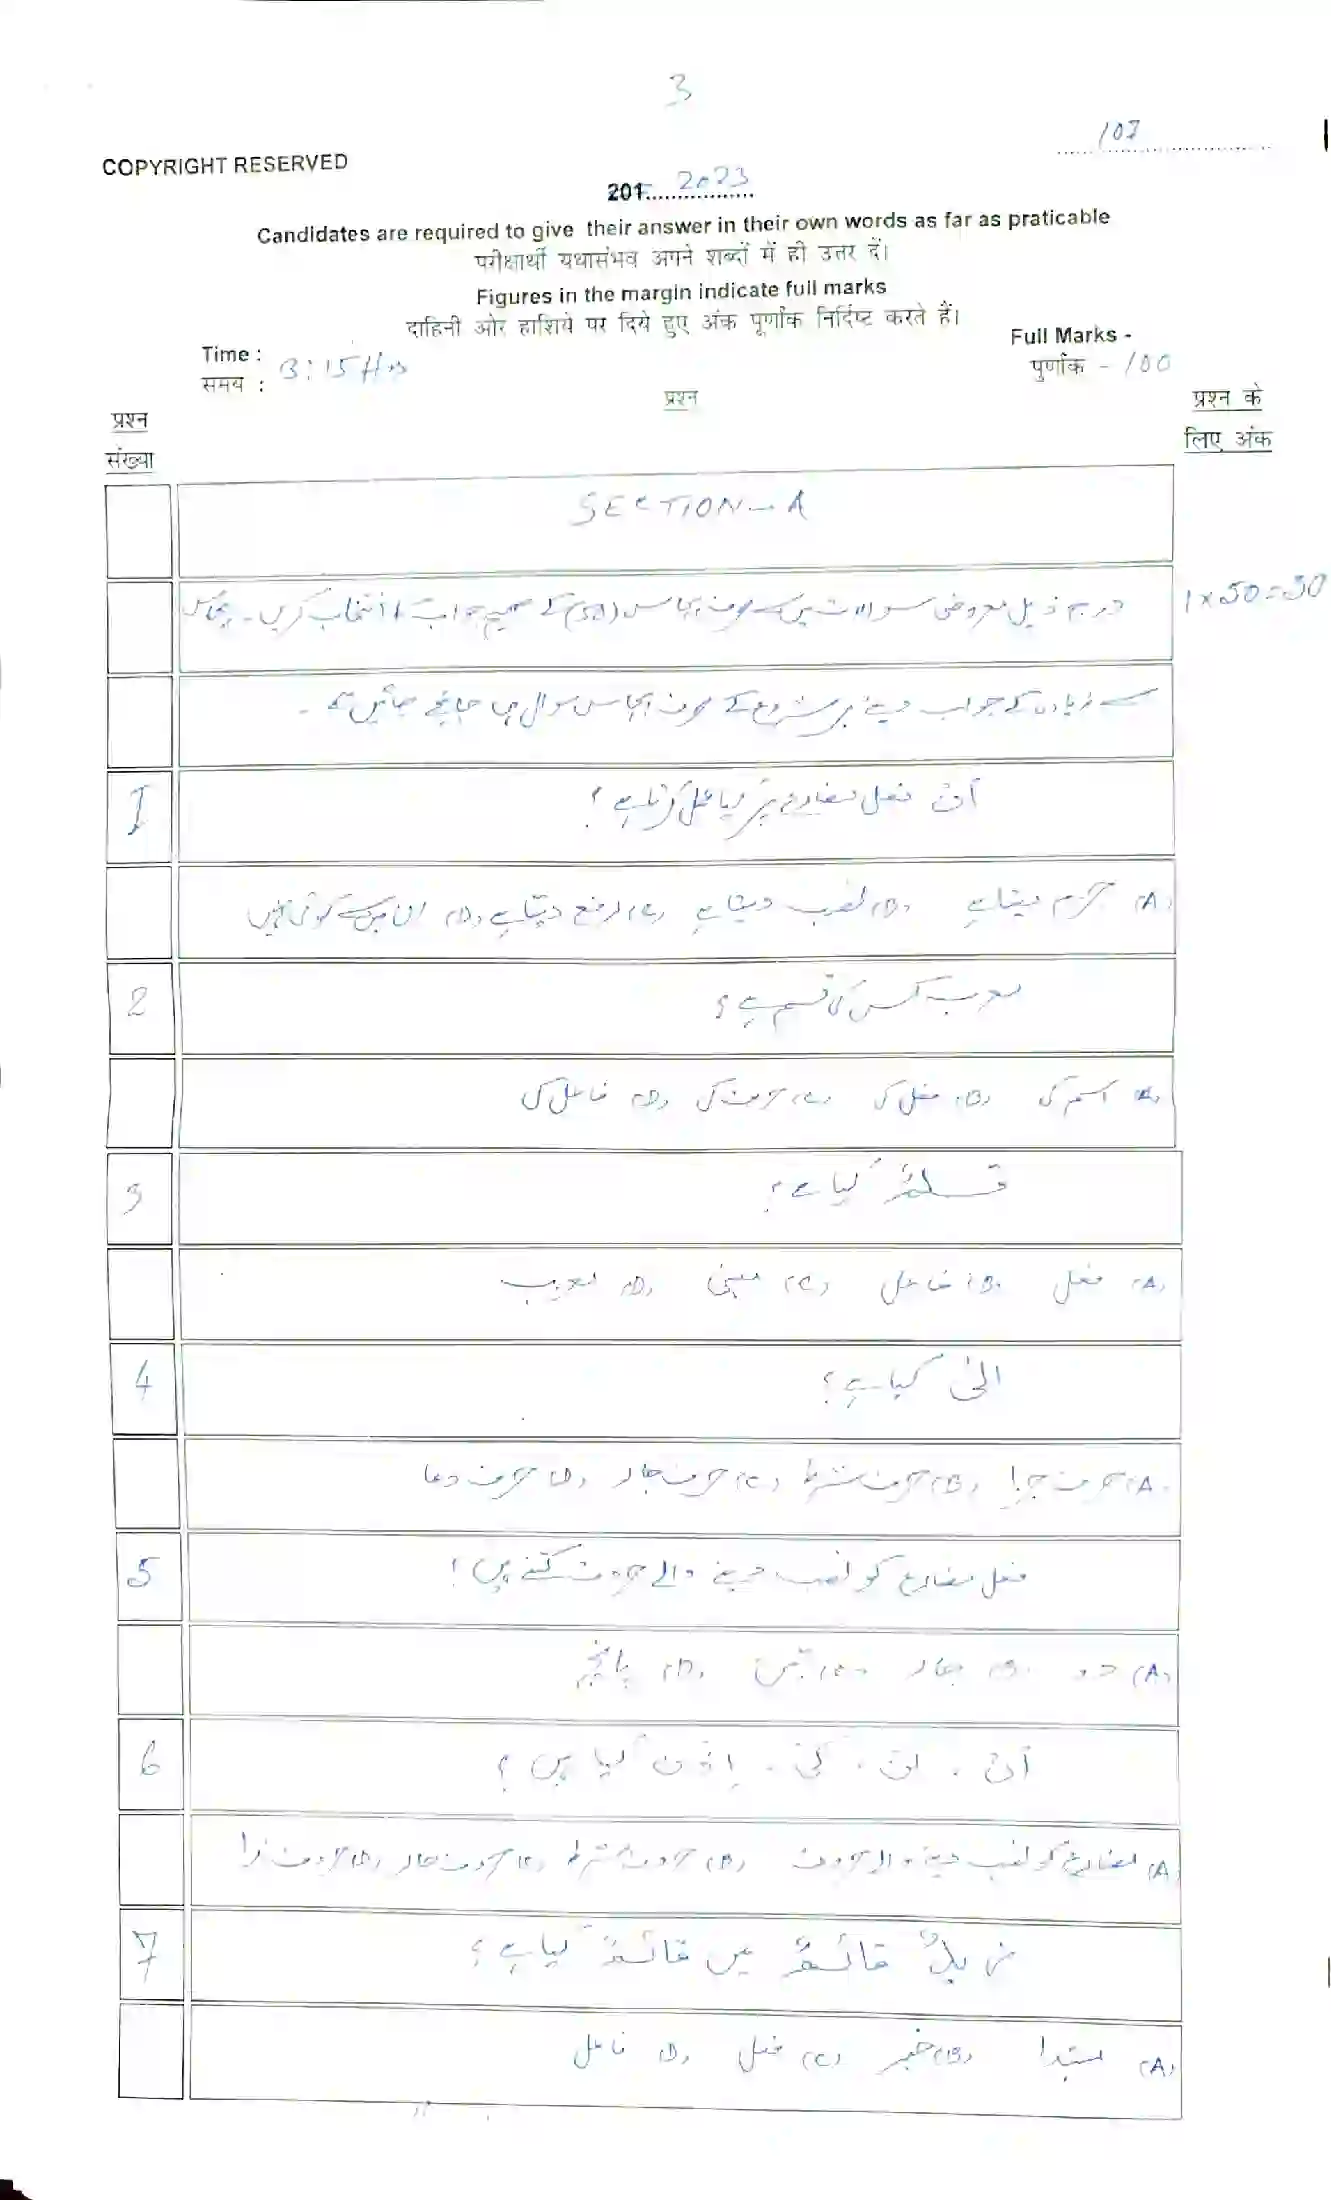 3
107
COPYRIGHT RESERVED
201 2023
Candidates are required to give their answer in their own words as far as praticable
परीक्षार्थी यथासंभव अपने शब्दों में ही उत्तर दें।
Figures in the margin indicate full marks
दाहिनी ओर हाशिये पर दिये हुए अंक पूर्णांक निर्दिष्ट करते हैं।
Time : 3:15 Hrs
समय :
Full Marks -
पूर्णांक - 100
प्रश्न संख्या
प्रश्न
प्रश्न के लिए अंक
SECTION - A
درج ذیل معروضی سوالات میں سے صرف پچاس (50) کے صحیح جواب کا انتخاب کریں۔ پچاس
1 x 50 = 50
سے زیادہ کے جواب دینے پر شروع کے صرف پچاس سوال ہی جانچے جائیں گے۔
1 أن فعل مضارع پر کیا عمل کرتا ہے؟
(A) جزم دیتا ہے (B) نصب دیتا ہے (C) رفع دیتا ہے (D) ان میں سے کوئی نہیں
2 معرب کس کی قسم ہے؟
(A) اسم کی (B) فعل کی (C) حرف کی (D) فاعل کی
3 قلمٌ کیا ہے؟
(A) فعل (B) فاعل (C) مبنی (D) معرب
4 الیٰ کیا ہے؟
(A) حرف جزا (B) حرف شرط (C) حرف جار (D) حرف دعا
5 فعل مضارع کو نصب دینے والے حروف کتنے ہیں؟
(A) دو (B) چار (C) تین (D) پانچ
6 أن ۔ لن ۔ کی ۔ إذن کیا ہیں؟
(A) مضارع کو نصب دینے والے حروف (B) حروف شرط (C) حروف جار (D) حروف ندا
7 زیدٌ قائمٌ میں قائمٌ کیا ہے؟
(A) مبتدا (B) خبر (C) فعل (D) فاعل